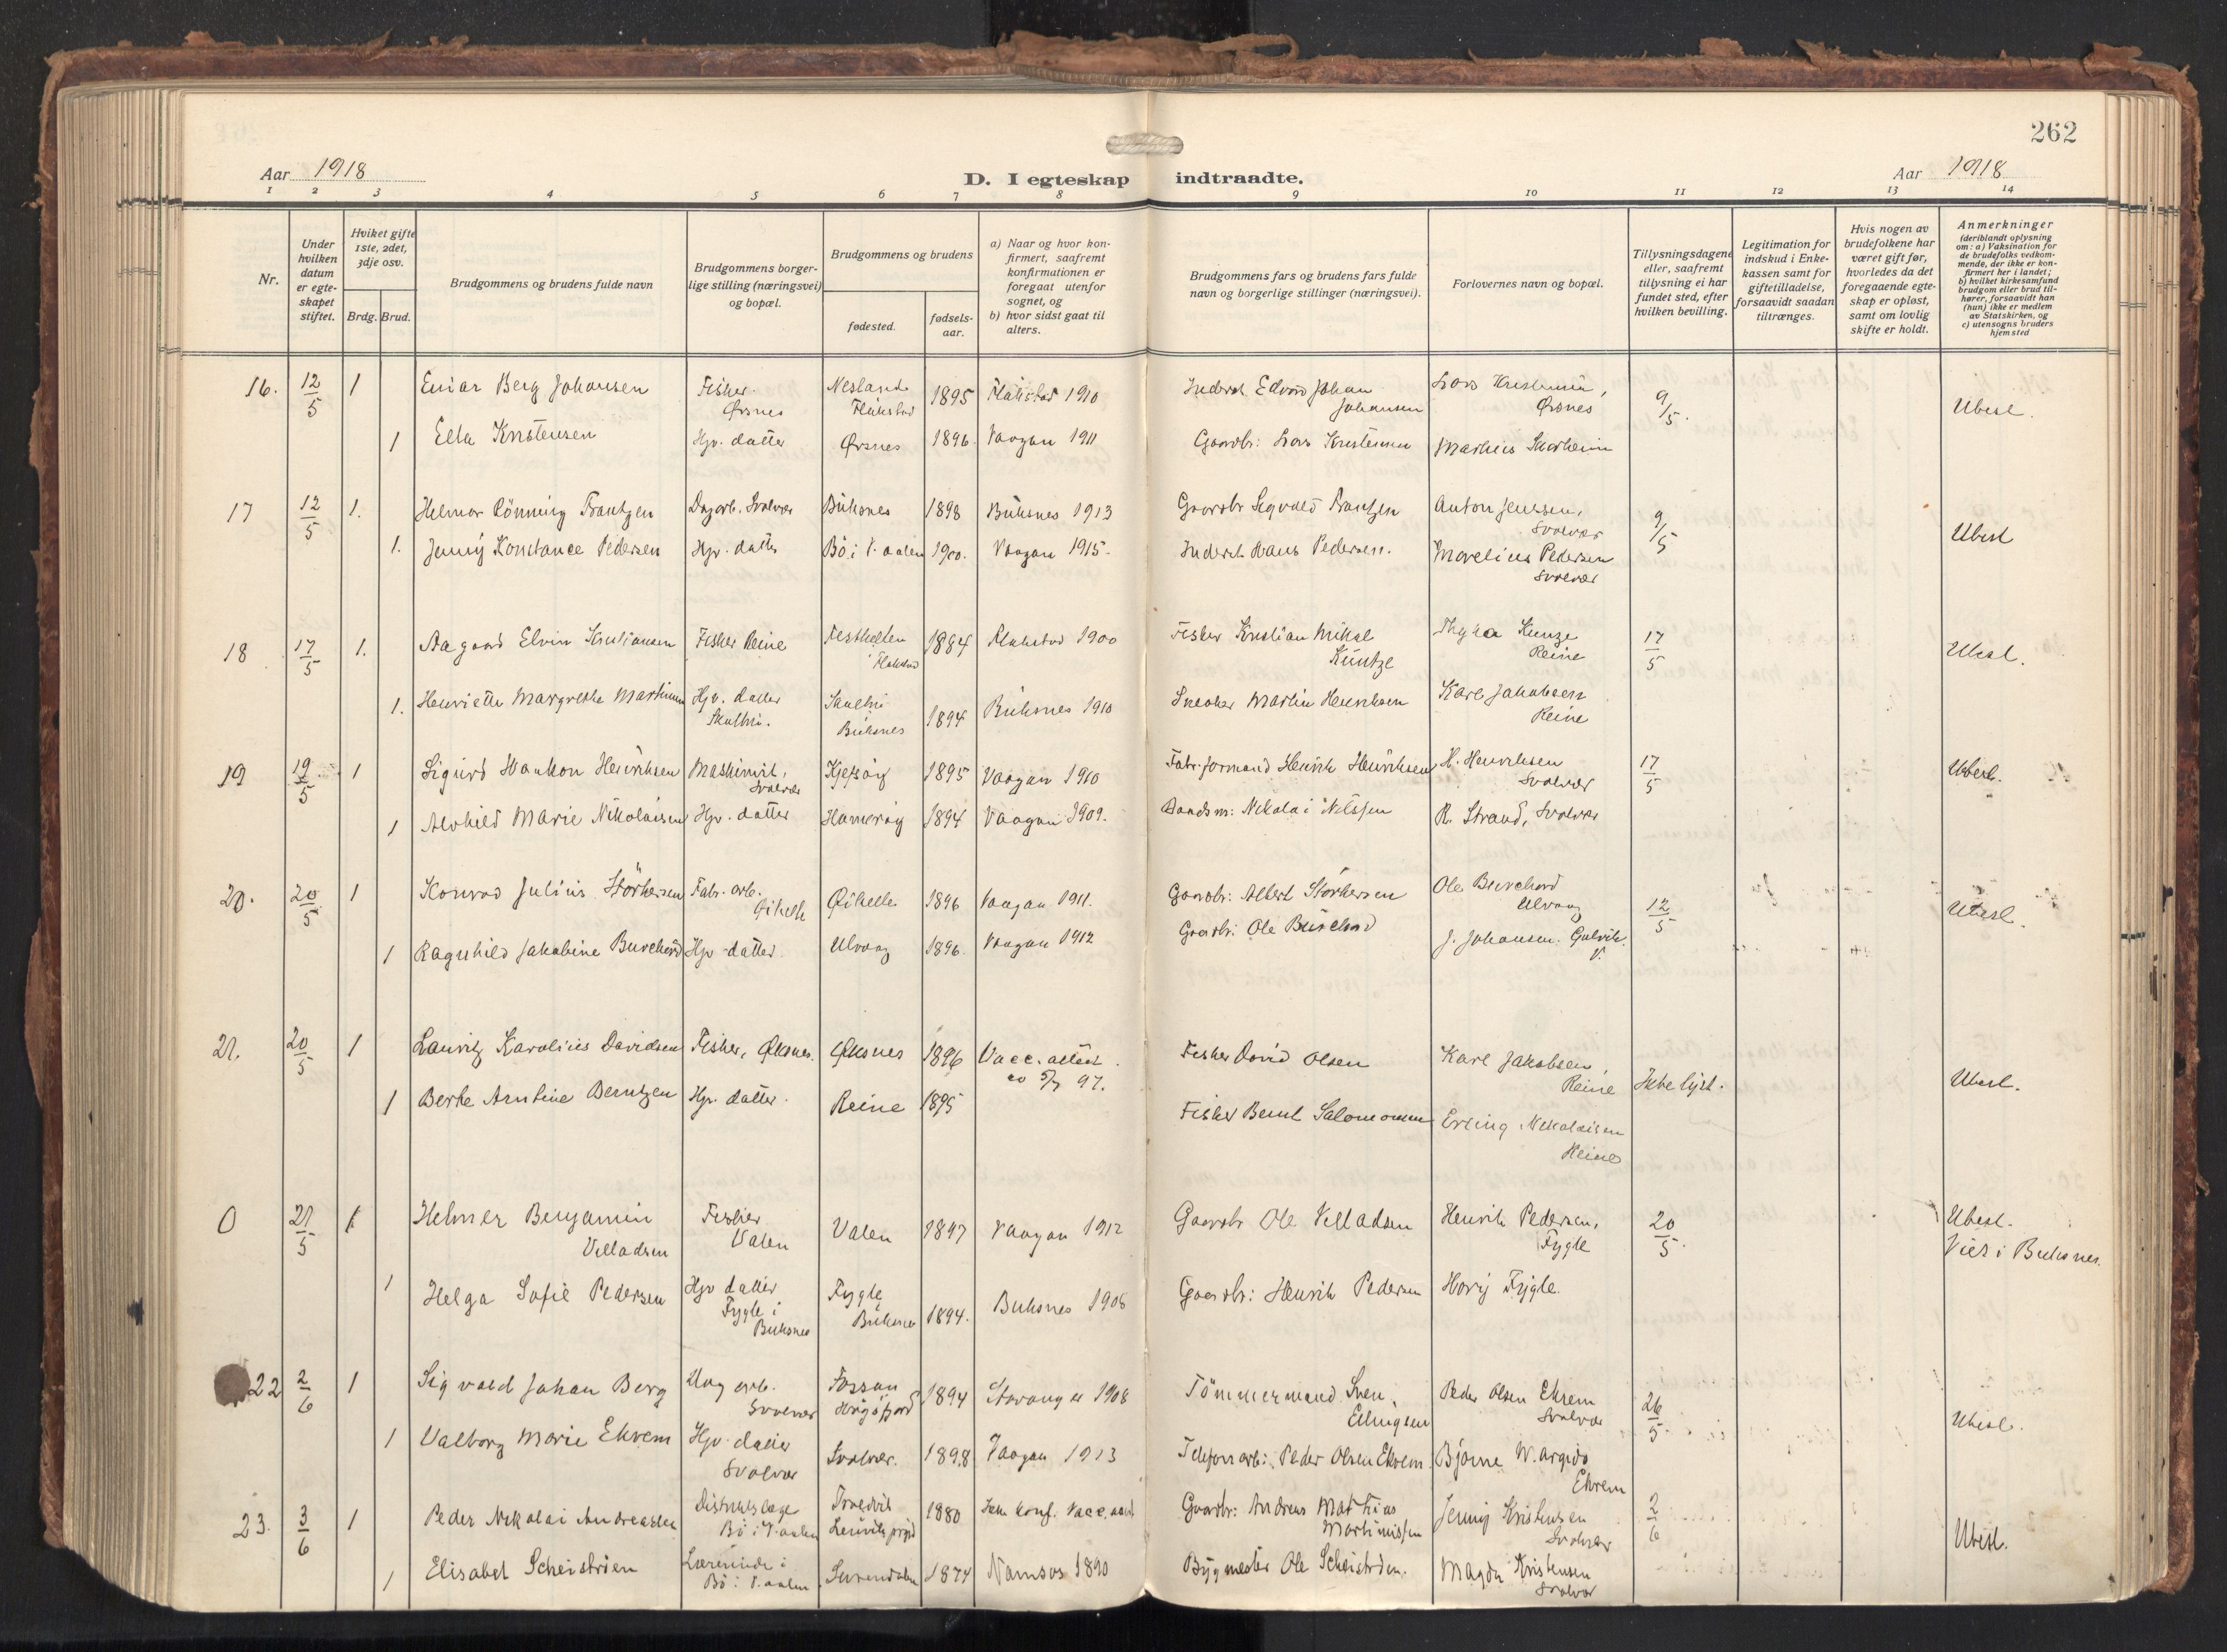 262
Aar 1918
D. I egteskap indtraadte.
Aar 1918
1 2 3 4 5 6 7 8 9 10 11 12 13 14
Nr.
Under hvilken datum er egteskapet stiftet.
Hviket gifte 1ste, 2det, 3dje osv.
Brdg. Brud.
Brudgommens og brudens fulde navn
Brudgommens borgerlige stilling (næringsvei) og bopæl.
Brudgommens og brudens
fødested.
fødselsaar.
a) Naar og hvor konfirmert, saafremt konfirmationen er foregaat utenfor sognet, og
b) hvor sidst gaat til alters.
Brudgommens fars og brudens fars fulde navn og borgerlige stillinger (næringsvei).
Forlovernes navn og bopæl.
Tillysningsdagene eller, saafremt tillysning ei har fundet sted, efter hvilken bevilling.
Legitimation for indskud i Enkekassen samt for giftetilladelse, forsaavidt saadan tiltrænges.
Hvis nogen av brudefolkene har været gift før, hvorledes da det foregaaende egteskap er opløst, samt om lovlig skifte er holdt.
Anmerkninger
(deriblandt oplysning om: a) Vaksination for de brudefolks vedkommende, der ikke er konfirmert her i landet;
b) hvilket kirkesamfund brudgom eller brud tilhører, forsaavidt han (hun) ikke er medlem av Statskirken, og
c) utensogns bruders hjemsted
16. 12/5 1 Einar Berg Johansen Fisker Ørsnes Nesland Flakstad 1895 Flakstad 1910 Inderst Edvard Johan Johansen Lars Kristensen, Ørsnes 9/5. Ubesl.
1 Ella Kristensen Hjv. datter Ørsnes 1896 Vaagan 1911 Gaardbr: Lars Kristensen Matheus
17 12/5 1. Helmar Rönning Frantzen Dagarb. Svolvær Buksnes 1898 Buksnes 1913 Gaardbr Sigvald Frantzen Anton Jenssen, Svolvær 9/5 Ubesl
1. Jenny Konstance Pedersen Hjv. datter Bö i V.aalen 1900. Vaagan 1915. Inderst Hans Pedersen. Marelius Pedersen Svolvær
18 17/5 1. Aagaard Elvin Kristiansen Fisker Reine Flakstad 1884 Flakstad 1900 Fisker Kristian Mikal Küntze Thyra Kunze Reine 17/5 Ubesl.
1. Henriette Margrethe Martinsen Hjv. datter Buksnes 1894 Buksnes 1910 Snedker Martin Henriksen Karl Jakobsen Reine
19 19/5 1 Sigurd Haakon Henriksen Maskinist, Svolvær Kjeøy 1895 Vaagan 1910 Fabr. formand Henrik Henriksen H. Henriksen Svolvær 17/5 Ubesl.
1 Alvhild Marie Nikolaisen Hjv. datter Hamerøy 1894 Vaagan 1909. Baadsm: Nikolai Nilssen R. Strand, Svolvær
20. 20/5 1 Konrad Julius Störkersen Fabr. arb. Ørsnes 1896 Vaagan 1911. Gaardbr: Albert Störkersen Ole Burchard Ulvaag 12/5 Ubesl.
1 Ragnhild Jakobine Burchard Hjv. datter. Ulvaag 1896. Vaagan 1912 Gaardbr: Ole Burchard J. Johansen. Gulvik. V.
21. 20/5 1 Lauritz Karolius Davidsen Fisker, Øksnes. Øksnes 1896 Vacc. attest 5/7 97. Fisker David Olsen Karl Jakobsen, Reine Ikke lyst. Ubesl.
1 Berte Arntine Berntzen Hjv. datter. Reine 1895 Fisker Bernt Salomonsen Erling Nikolaisen Reine
0 21/5 1 Helmer Benjamin Villadsen Fisker Valen Valen 1897 Vaagan 1912 Gaardbr Ole Villadsen Henrik Pedersen, Fygle 20/5. Ubesl. Viet i Buksnes.
1 Helga Sofie Pedersen Hjv datter Fygle i Buksnes Fygle Buksnes 1894. Buksnes 1908 Gaardbr: Henrik Pedersen Fygle.
22 2/6 1 Sigvald Johan Berg Dag arb. Svolvær Fossan Høgsfjord 1894 Stavanger 1908 Tömmermand Sven Ellingsen Peder Olsen Ekrem Svolvær 26/5 Ubesl.
1 Valborg Marie Ekrem Hjv. datter Svolvær Svolvær. 1898 Vaagan 1913 Telefonarb: Peder Olsen Ekrem Bjarne Ekrem
23. 3/6 1 Peder Nikolai Andreassen Distriktslæge Bö i V.aalen Lenvik 1880 Ikke konf. Vacc. Gaardbr: Andreas Mathias Martinussen Jenny Kristensen Svolvær 2/6 Ubesl.
1 Elisabet Scheiströen Lærerinde i Bö i V.aalen. Surendalen 1874 Namsos 1890 Bygmester Ole Scheiströen. Magda Kristensen Svolvær